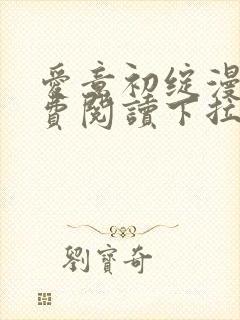 愛意初綻漫
費閱讀下拉
劉寶奇